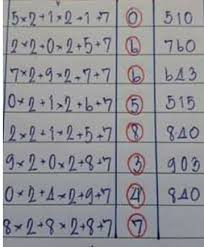 5×2+1×2+1+7 0 510
2×2+0×2+5+7 6 760
7×2+9×2+7+7 6 643
0×2+1×2+6+7 5 515
2×2+1×2+5+7 8 840
9×2+0×2+8+7 3 903
0×2+4×2+9+7 4 840
8×2+8×2+8+7 7